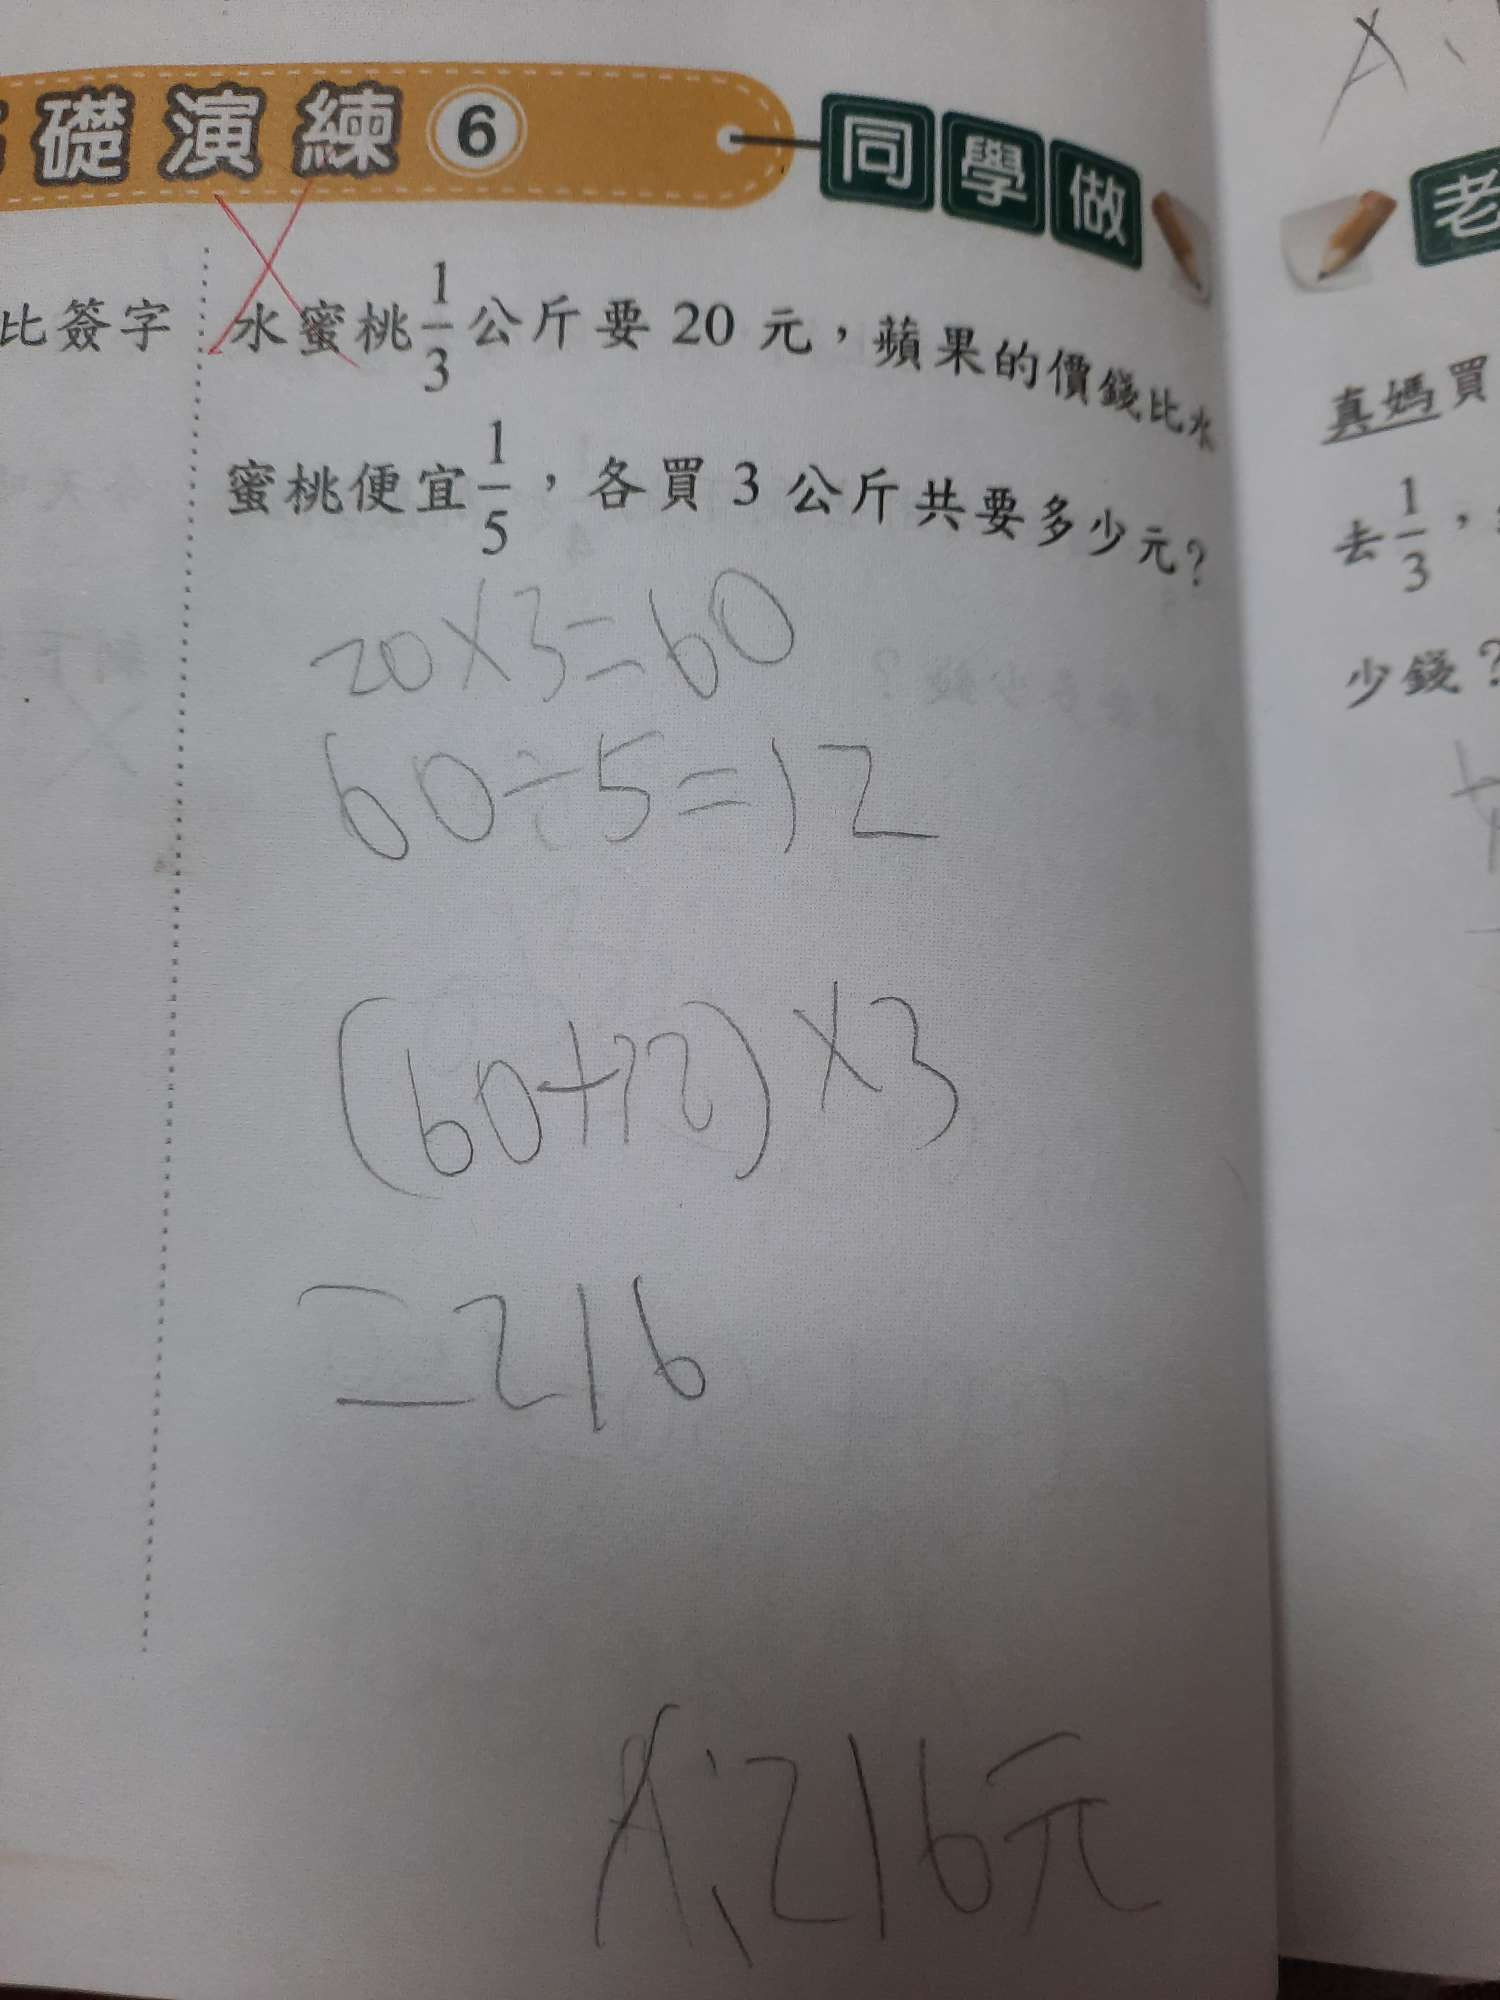 礎演練 6 同學做
比簽字
水蜜桃 1/3 公斤要 20 元，蘋果的價錢比水
蜜桃便宜 1/5，各買 3 公斤共要多少元？
20×3=60
60÷5=12
(60+12)×3
=216
A:216元
A
老
真媽買
去 1/3，
少錢？